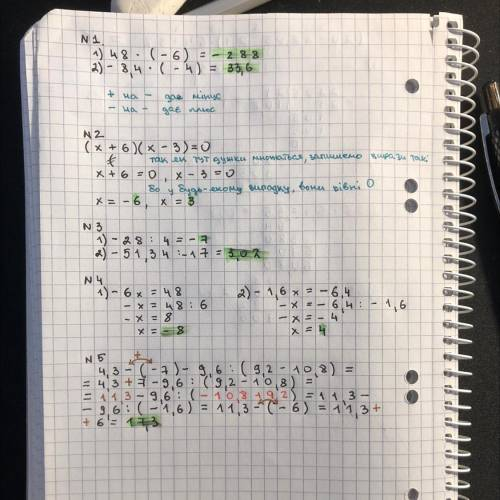 №1
1) 48 · (-6) = -288
2) -8,4 · (-4) = 33,6
+ на - дає мінус
- на - дає плюс
№2
(x + 6)(x - 3) = 0
так як тут дужки множаться, запишемо вирази так:
x + 6 = 0, x - 3 = 0
бо у будь-якому випадку, вони рівні 0
x = -6, x = 3
№3
1) -28 : 4 = -7
2) -51,34 : -17 = 3,02
№4
1) -6x = 48
-x = 48 : 6
-x = 8
x = -8
2) -1,6x = -6,4
-x = -6,4 : -1,6
-x = -4
x = 4
№5
+
4,3 - (-7) - 9,6 : (9,2 - 10,8) =
= 4,3 + 7 - 9,6 : (9,2 - 10,8) =
= 11,3 - 9,6 : (-10,8 + 9,2) = 11,3 -
- 9,6 : (-1,6) = 11,3 - (-6) = 11,3 +
+ 6 = 17,3